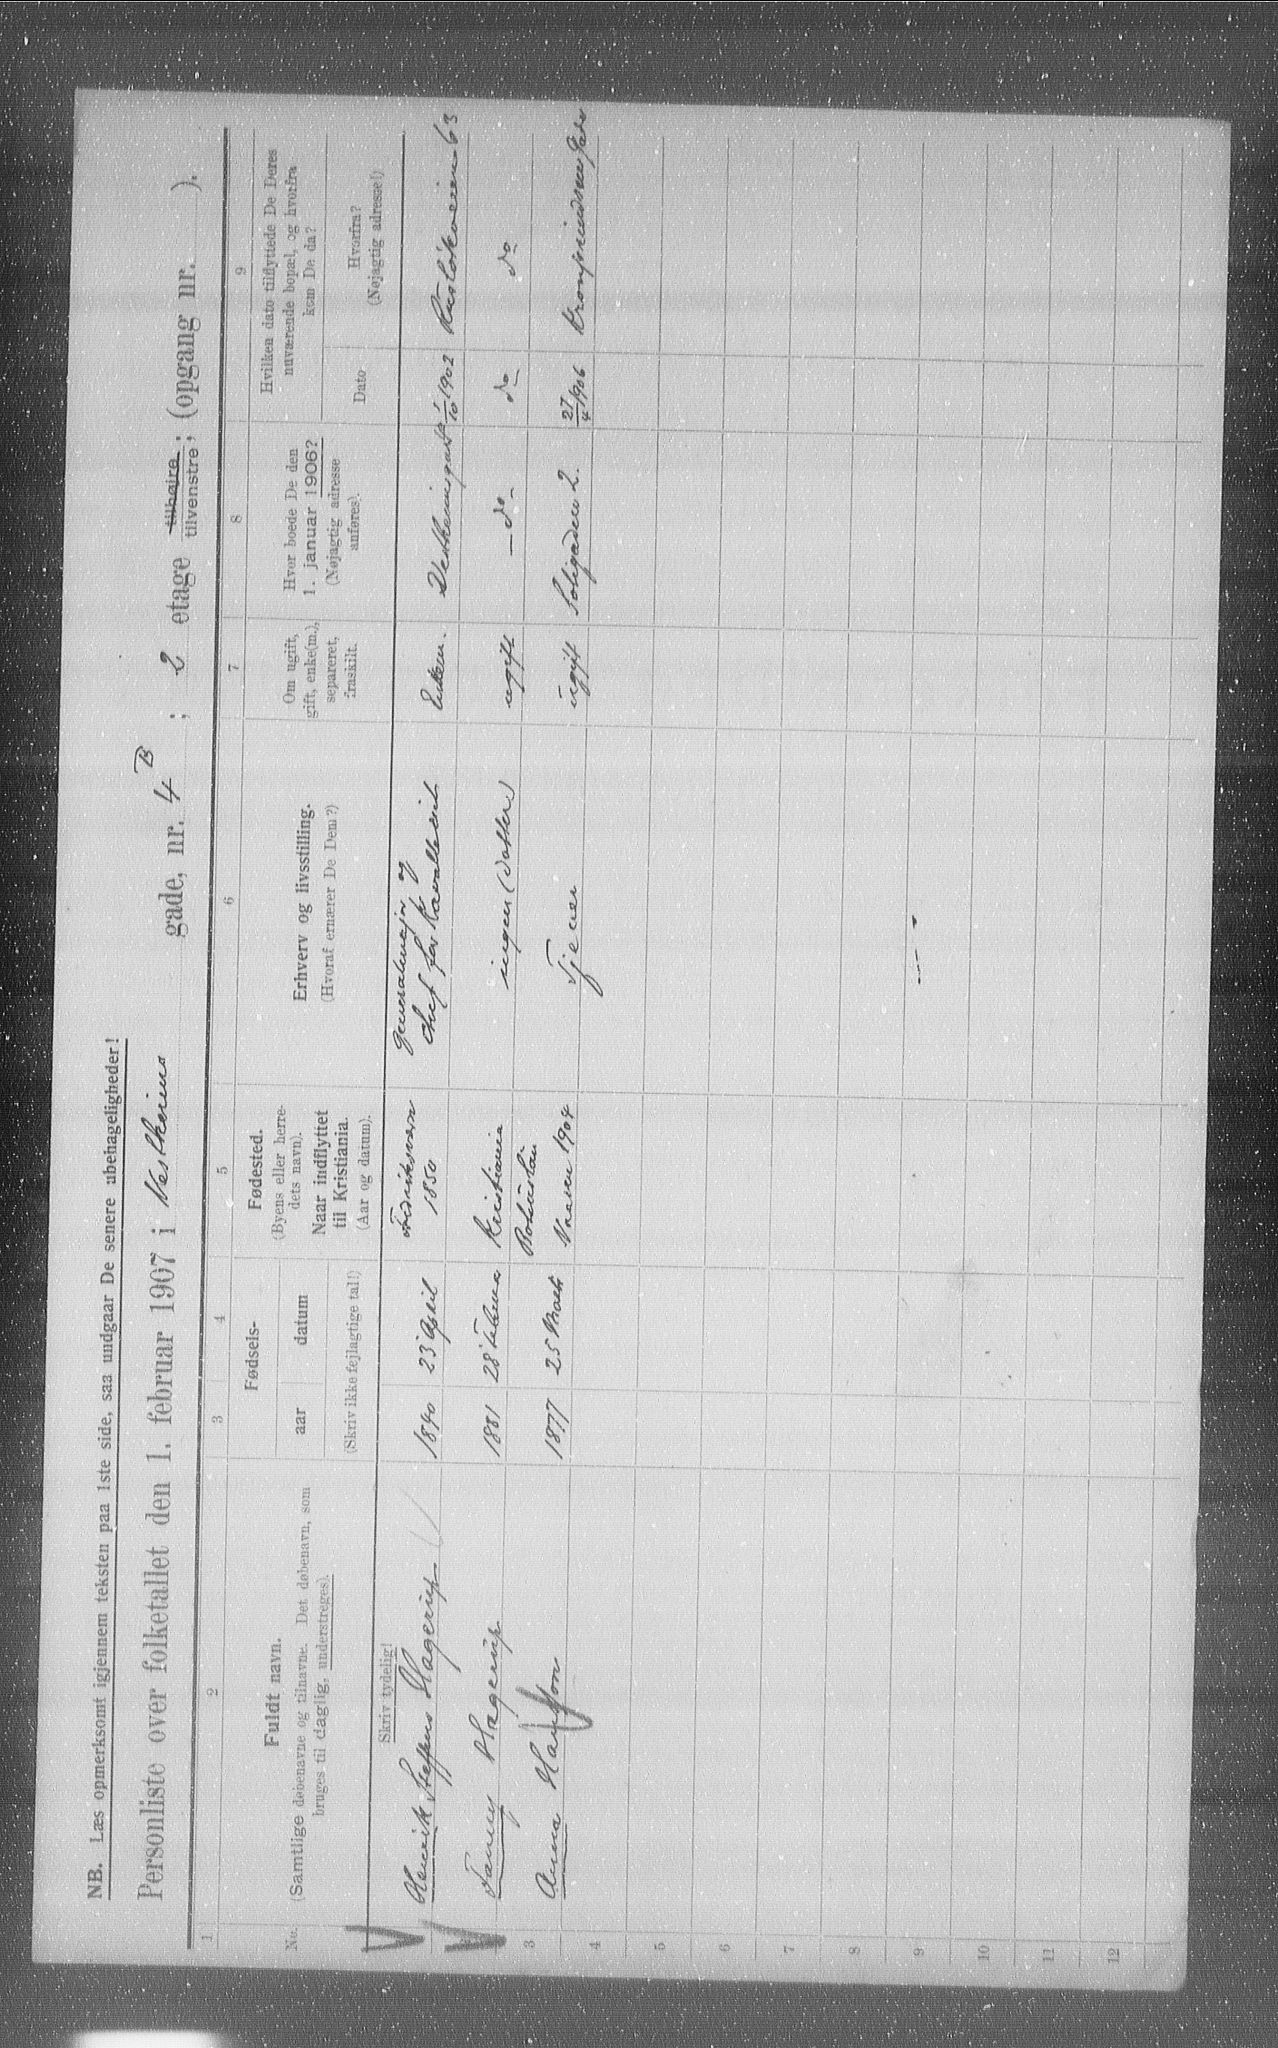 NB. Læs opmerksomt igjennem teksten paa 1ste side, saa undgaar De senere ubehageligheder!
Personliste over folketallet den 1. februar 1907 i Vestheims gade, nr. 4 B ; 2 etage tilhøire tilvenstre; (opgang nr. ).
1 2 3 4 5 6 7 8 9
No.
Fuldt navn.
(Samtlige døbenavne og tilnavne. Det døbenavn, som
bruges til daglig, understreges).
Skriv tydelig!
Fødsels-
aar datum
(Skriv ikke fejlagtige tal!)
Fødested.
(Byens eller herre-
dets navn).
Naar indflyttet
til Kristiania.
(Aar og datum).
Erhverv og livsstilling.
(Hvoraf ernærer De Dem?)
Om ugift,
gift, enke(m.),
separeret,
fraskilt.
Hvor boede De den
1. januar 1906?
(Nøjagtig adresse
anføres).
Hvilken dato tilflyttede De Deres
nuværende bopæl, og hvorfra
kom De da?
Dato
Hvorfra?
(Nøjagtig adresse!)
Henrik Steffens Hagerup 1840 23 April Fredriksværn 1850 Generalmajor og Chef for Kavalleriet Enkem. Vestheimsgad 1/10 1902 Ruseløkveien 63
Fanny Hagerup 1881 28 Februar Kristiania ingen (datter) ugift - do - do do
3 Anna Hansson 1877 25 Marts Bohuslän Vaaren 1904 Tjener ugift Soligaden 2. 27/4 1906 Kronprindsens Gade
4
5
6
7
8
9
10
11
12